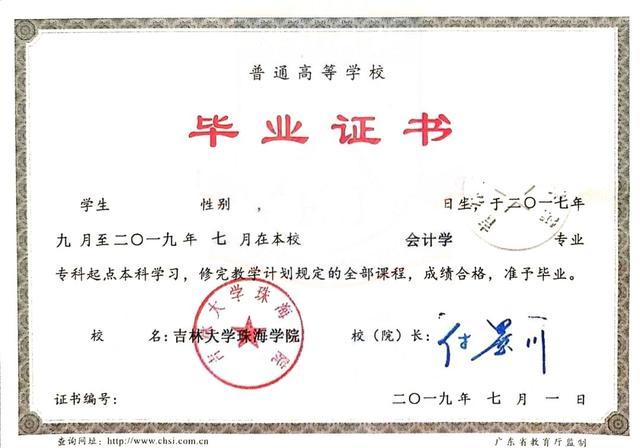 普通高等学校
毕业证书
学生 性别 , 日生，于二〇一七年
九月至二〇一九年 七 月在本校 会计学 专业
专科起点本科学习，修完教学计划规定的全部课程，成绩合格，准予毕业。
校 名：吉林大学珠海学院 校（院）长：
吉林大学珠海学院
证书编号： 二〇一九年 七 月 一 日
查询网址：http://www.chsi.com.cn 广东省教育厅监制